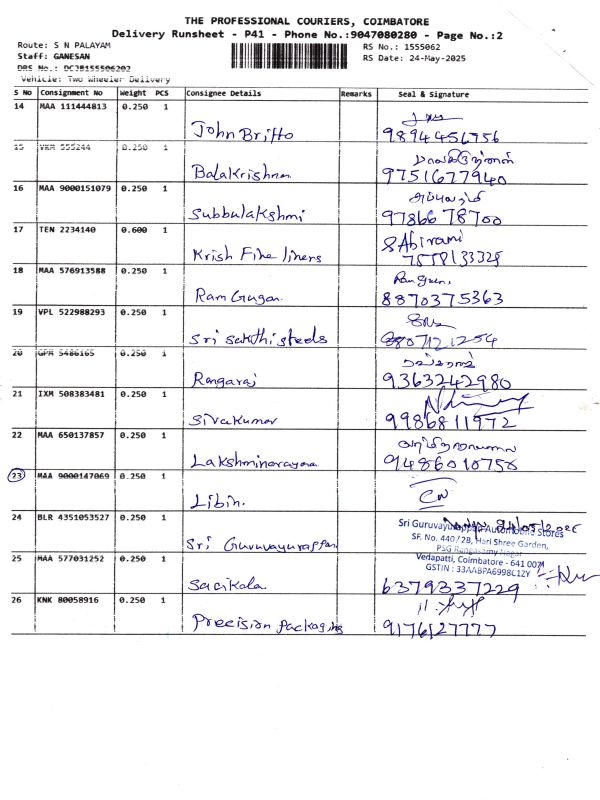 THE PROFESSIONAL COURIERS, COIMBATORE
Delivery Runsheet - P41 - Phone No.:9047080280 - Page No.:2
Route: S N PALAYAM RS No.: 1555062
Staff: GANESAN RS Date: 24-May-2025
DRS No.: DCJB155506202
Vehicle: Two Wheeler Delivery
S No Consignment No Weight PCS Consignee Details Remarks Seal & Signature
14 MAA 111444813 0.250 1
John Britto 9894456756
15 VKM 555244 0.250 1
பாலகிருஷ்ணன்
Balakrishnan 9751677940
16 MAA 9000151079 0.250 1
Subbulakshmi 9786678700
17 TEN 2234140 0.600 1
S Abirami
Krish Fine liners 7558133329
18 MAA 576913588 0.250 1
Ram Gugan 8870375363
19 VPL 522988293 0.250 1
Sri Sakthi steels 8807121254
20 GPR 5486165 0.250 1
Rangaraj 9363242980
21 IXM 508383481 0.250 1
Sivakumar 9986811972
22 MAA 650137857 0.250 1
Lakshminarayana 9486010758
23 MAA 9000147069 0.250 1
Libin
24 BLR 4351053527 0.250 1
Sri Guruvayurappan Automobile Stores
SF. No. 440/2B, Hari Shree Garden,
Sri Guruvayurappan PSG Rangasamy Nagar
25 MAA 577031252 0.250 1 Vedapatti, Coimbatore - 641 007
GSTIN : 33AABPA6998C1ZY
Sasikala 6379337229
26 KNK 80058916 0.250 1
Precision packaging 9176127777